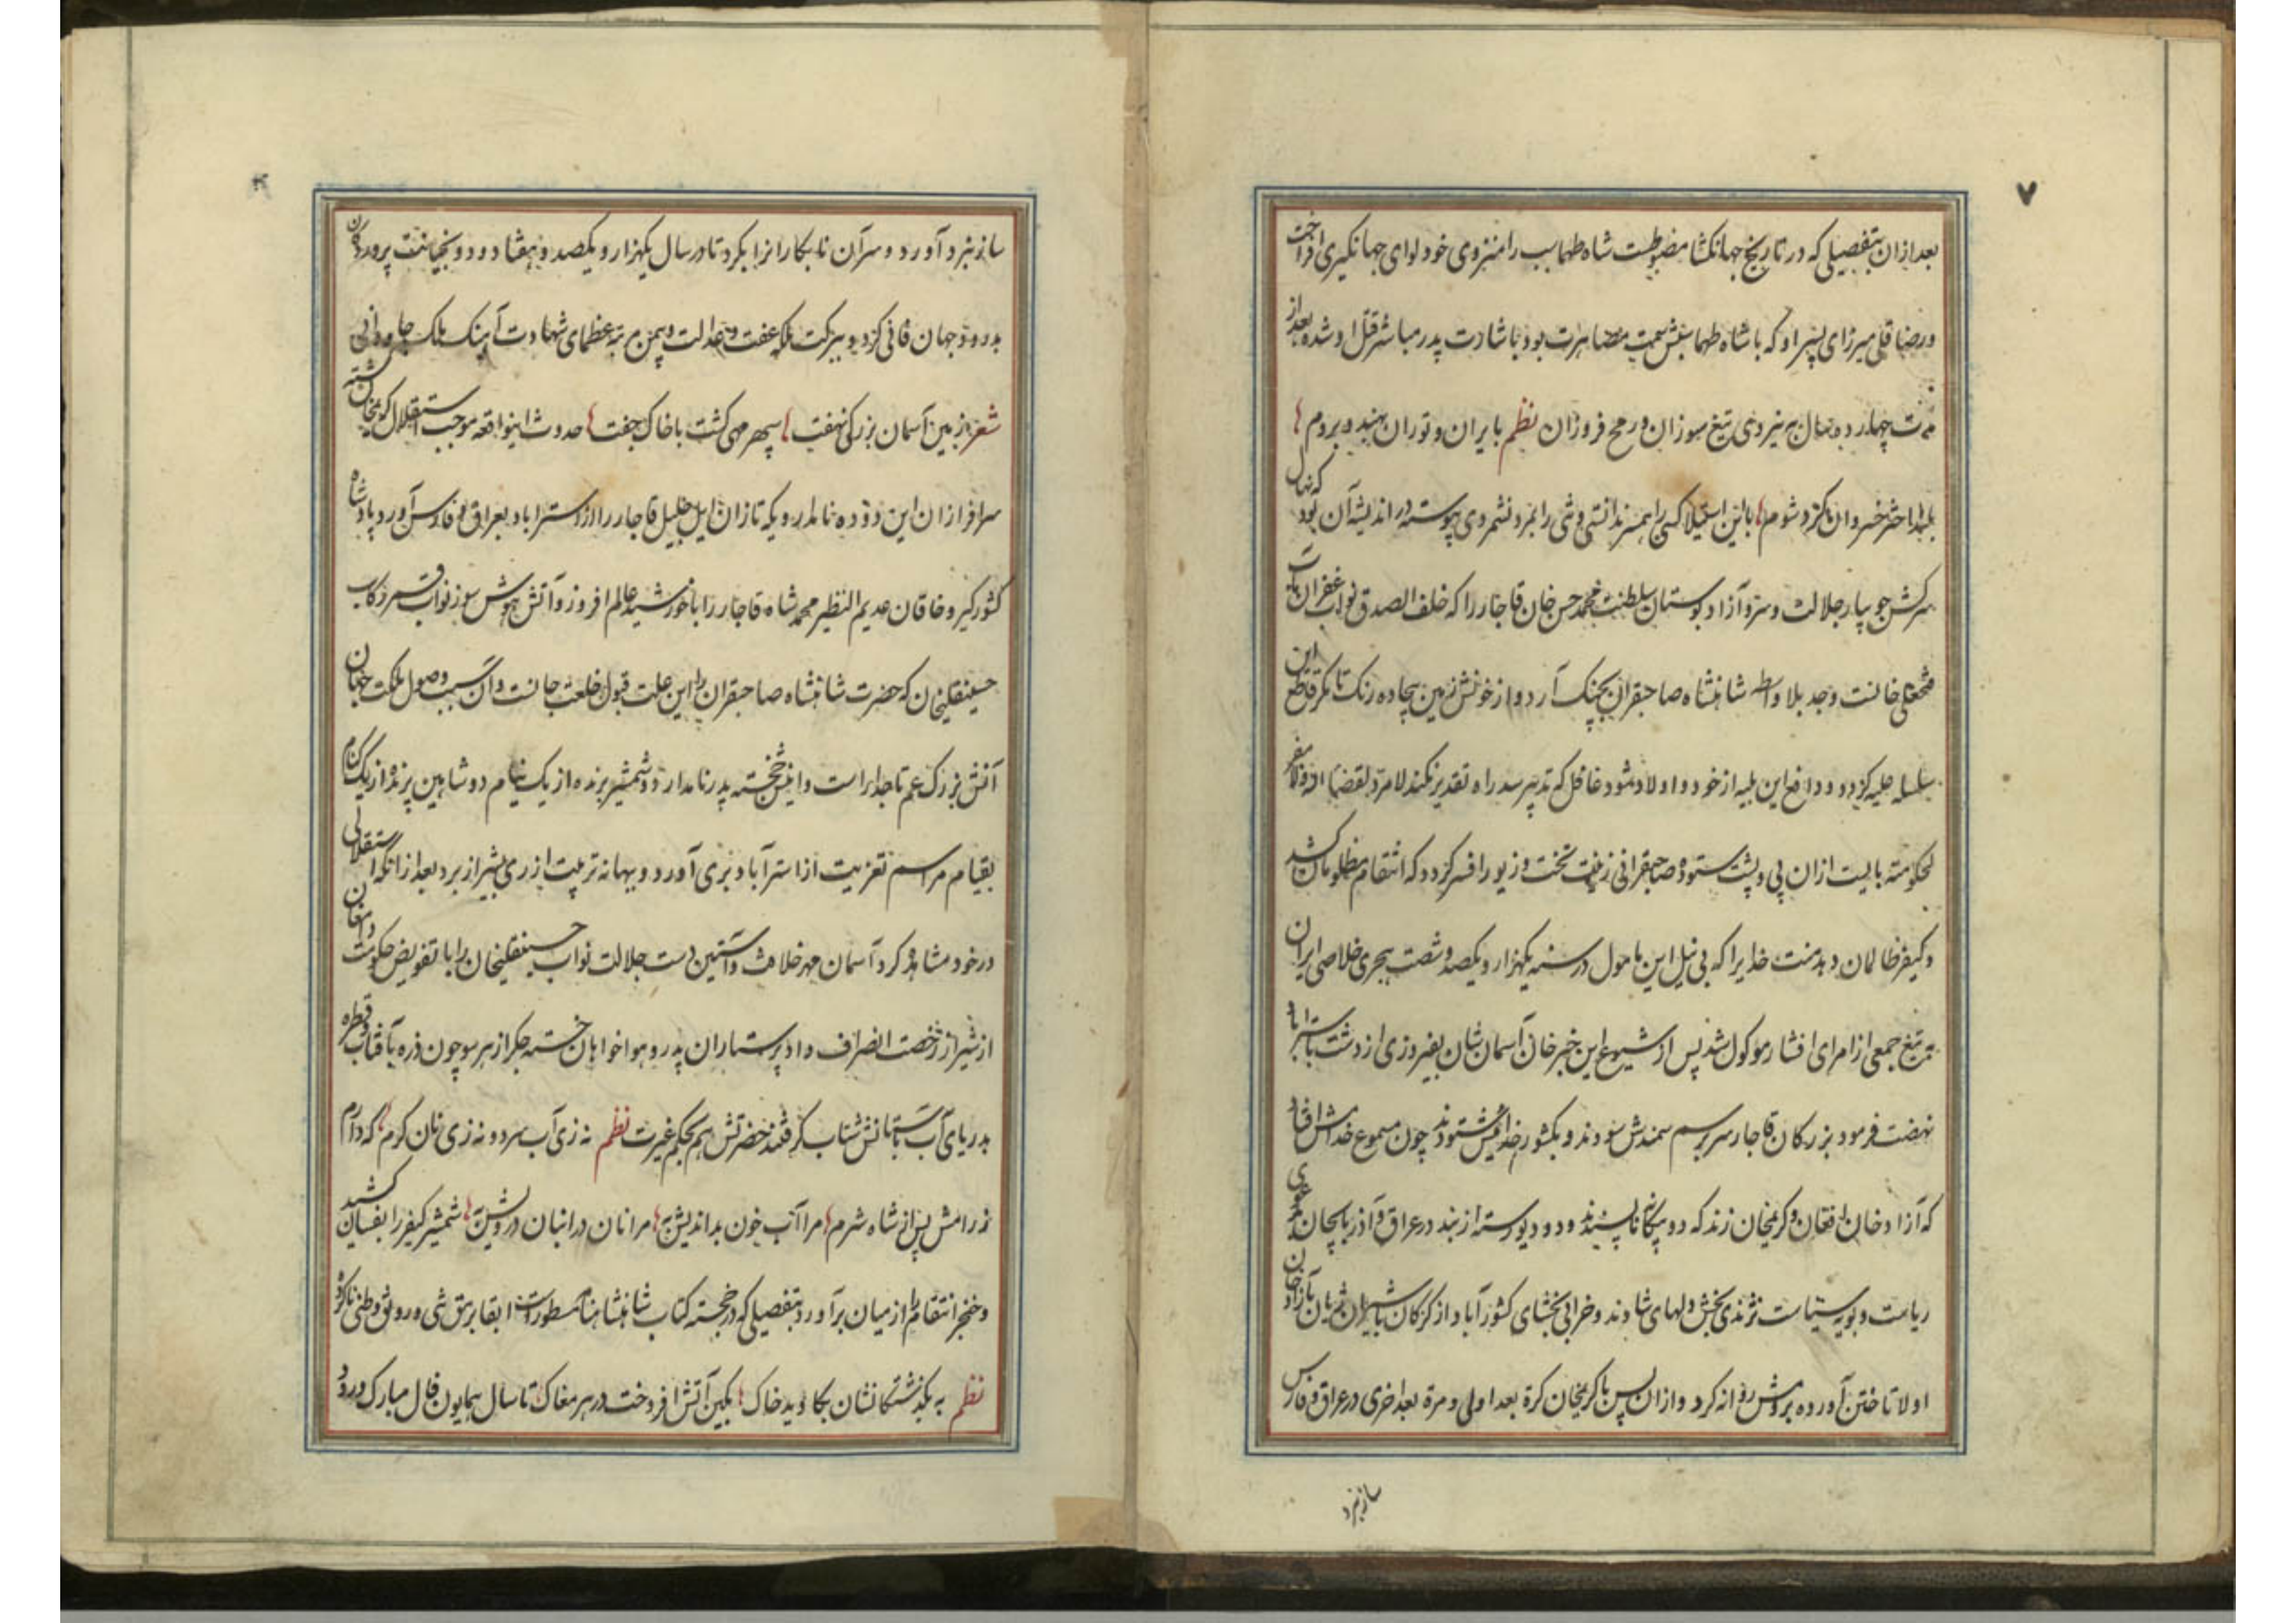 ۷
بعد ازان بتفصیلی که در تاریخ جهانکشا مضبوطست شاه طهماسب را منزوی خود لوای جهانکیری افراخت
و رضا قلی میرزای پسر او که با شاه طهماسبش سمت مصاهرت بود باشارت پدر مباشر قتل او شده بعد از
مدت چهارده سال به نیروی تیغ سوزان و رمح فروزان نظم بایران و توران بهند و بروم
بلند اختر خسروان کرد شوم با این استیلا کسی را همسر ندانستی و شی را بمرد نشمردی پیوسته در اندیشه آن بود که نهال
سرکش جویبار جلالت و سرو آزاد بوستان سلطنت محمد حسن خان قاجار را که خلف الصدق نواب غفران مآب
فتحعلی خانست وجد بلا واسطه شاهنشاه صاحبقران بچنک آرد و از خونش زمین بیجاده رنک تا مکر قاطع این
سلسله علیه کردد و دافع این بلیه از خود و اولاد شود غافل که تدبیر سد راه تقدیر نکند لامرد لقضائه ولا مفر
لحکومته بایست ازان پی و پشت ستوده صاحبقرانی زینت تخت و زیور افسر کردد که انتقام مظلومان کشد
و کیفر ظالمان دهد منت خدایرا که بی نیل این مامول در سنه یکهزار و یکصد و شصت هجری خلاصی ایران
به تیغ جمعی از امرای افشار موکول شد پس از شیوع این خبر خان آسمان شان بفیروزی از دشت باستراباد
نهضت فرمود بزرکان قاجار سر بر سم سمندش سودند و بکشور خدائیش ستودند چون مسموع خدامش افتاد
که آزاد خان افغان و کریمخان زند که دو بیکانه ناپسند و دو دیو رسته از بند در عراق و آذربایجان دعوی
ریاست و بویه سیاست نژندی بخش دلهای شادند و خرابی بخشای کشور آباد از کرکان با شیران ژیان بآزاد خان
اولا تاختن آورده بروسش روانه کرد و ازان پس با کریمخان کرة بعد اولی و مرة بعد اخری در عراق و فارس
ساز نبرد
ساز نبرد آورد و سر آن نابکارانرا بکرد تا در سال یکهزار و یکصد و هفتاد و دو بخیانت پروردکان
بدرود جهان فانی کرد و ببرکت ملکه عفت و عدالت و یمن مرتبه عظمای شهادت آهنک ملک جاودانی
شعر زمین آسمان بزرکی نهفت سپهر مهی کشت با خاک جفت حدوث اینواقعه موجب استقلال کریمخان کشته
سرافرازان این دوده نامدار و یکه تازان ایل جلیل قاجار را از استراباد بعراق و فارس آورد پادشاه
کشورکیر و خاقان عدیم النظیر محمد شاه قاجار را با خورشید عالم افروز و آتش هوش سوز نواب قمر رکاب
حسینقلیخان که حضرت شاهنشاه صاحبقران را این علت قبول خلعت جانست و آن سبب وصول ملکت جهان
آنش بزرک عم تاجدار است و اینش خجسته پدر نامدار دو شمشیر برنده از یک نیام دو شاهین پرنده از یک کنام
بقیام مراسم تعزیت از استرآباد بری آورد و ببهانه تربیت از ری بشیراز برد بعد از انکه استقلالی
در خود مشاهده کرد آسمان مهر خلافت و آستین دست جلالت نواب حسینقلیخان را با تفویض حکومت دامغان
از شیراز رخصت انصراف داد پرستاران پدر و هواخواهان خسته جکر از هر سو چون ذره بآفتاب و قطره
بدریای آب بآستانش شتاب کرفتند حضرتش بحکم غیرت نظم نه زی آب سرد و نه زی نان کرم که دارم
ز رامش پس از شاه شرم مرا آب خون بداندیش به مرا نان در انبان درویش به شمشیر کیفر را بفسان کشید
و خنجر انتقام را از میان برآورد بتفصیلی که در خجسته کتاب شاهنشاه نامه مسطور است ابقا بر هیق شی و رونق وطنی ناکرده
نظم به بکذشتکانشان بکاوید خاک بکین آتش افروخت در هر مغاک تا سال همایون فال مبارک ورود